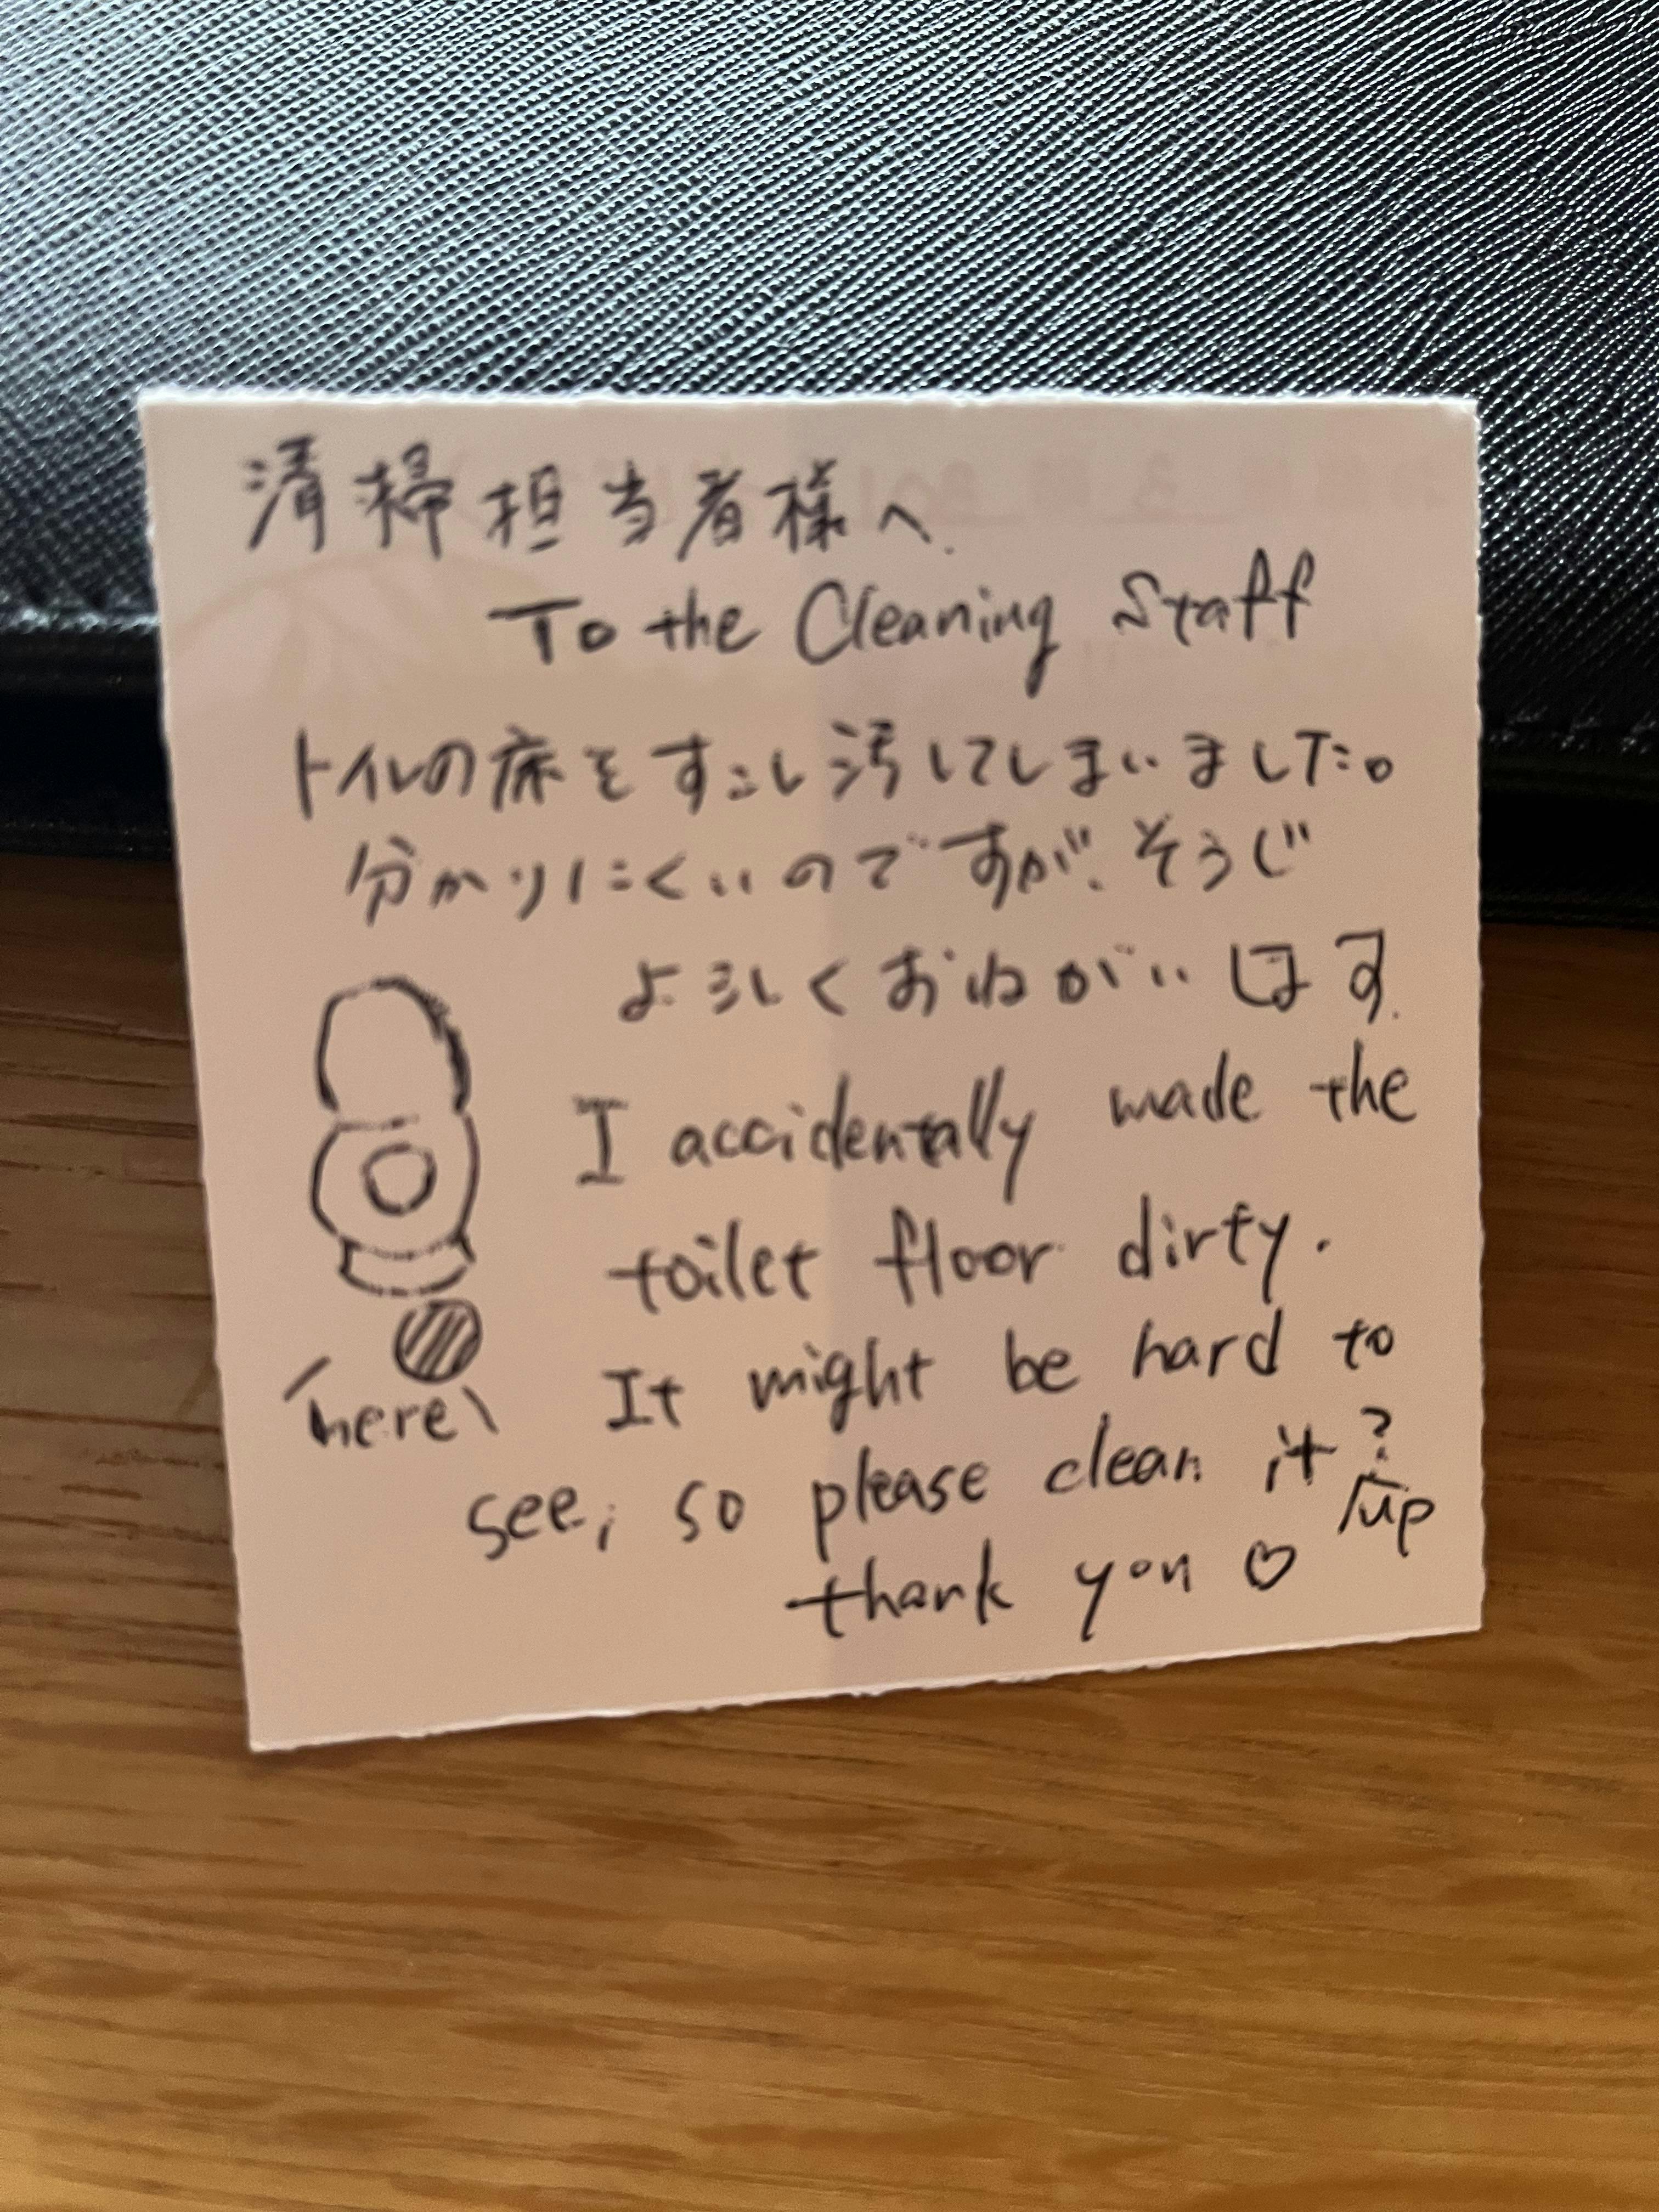 清掃担当者様へ.
To the Cleaning Staff
トイレの床をすこし汚してしまいました。
分かりにくいのですが、そうじ
よろしくおねがいします.
I accidentally made the
toilet floor dirty.
It might be hard to
see, so please clean it?
up
thank you ♡
here